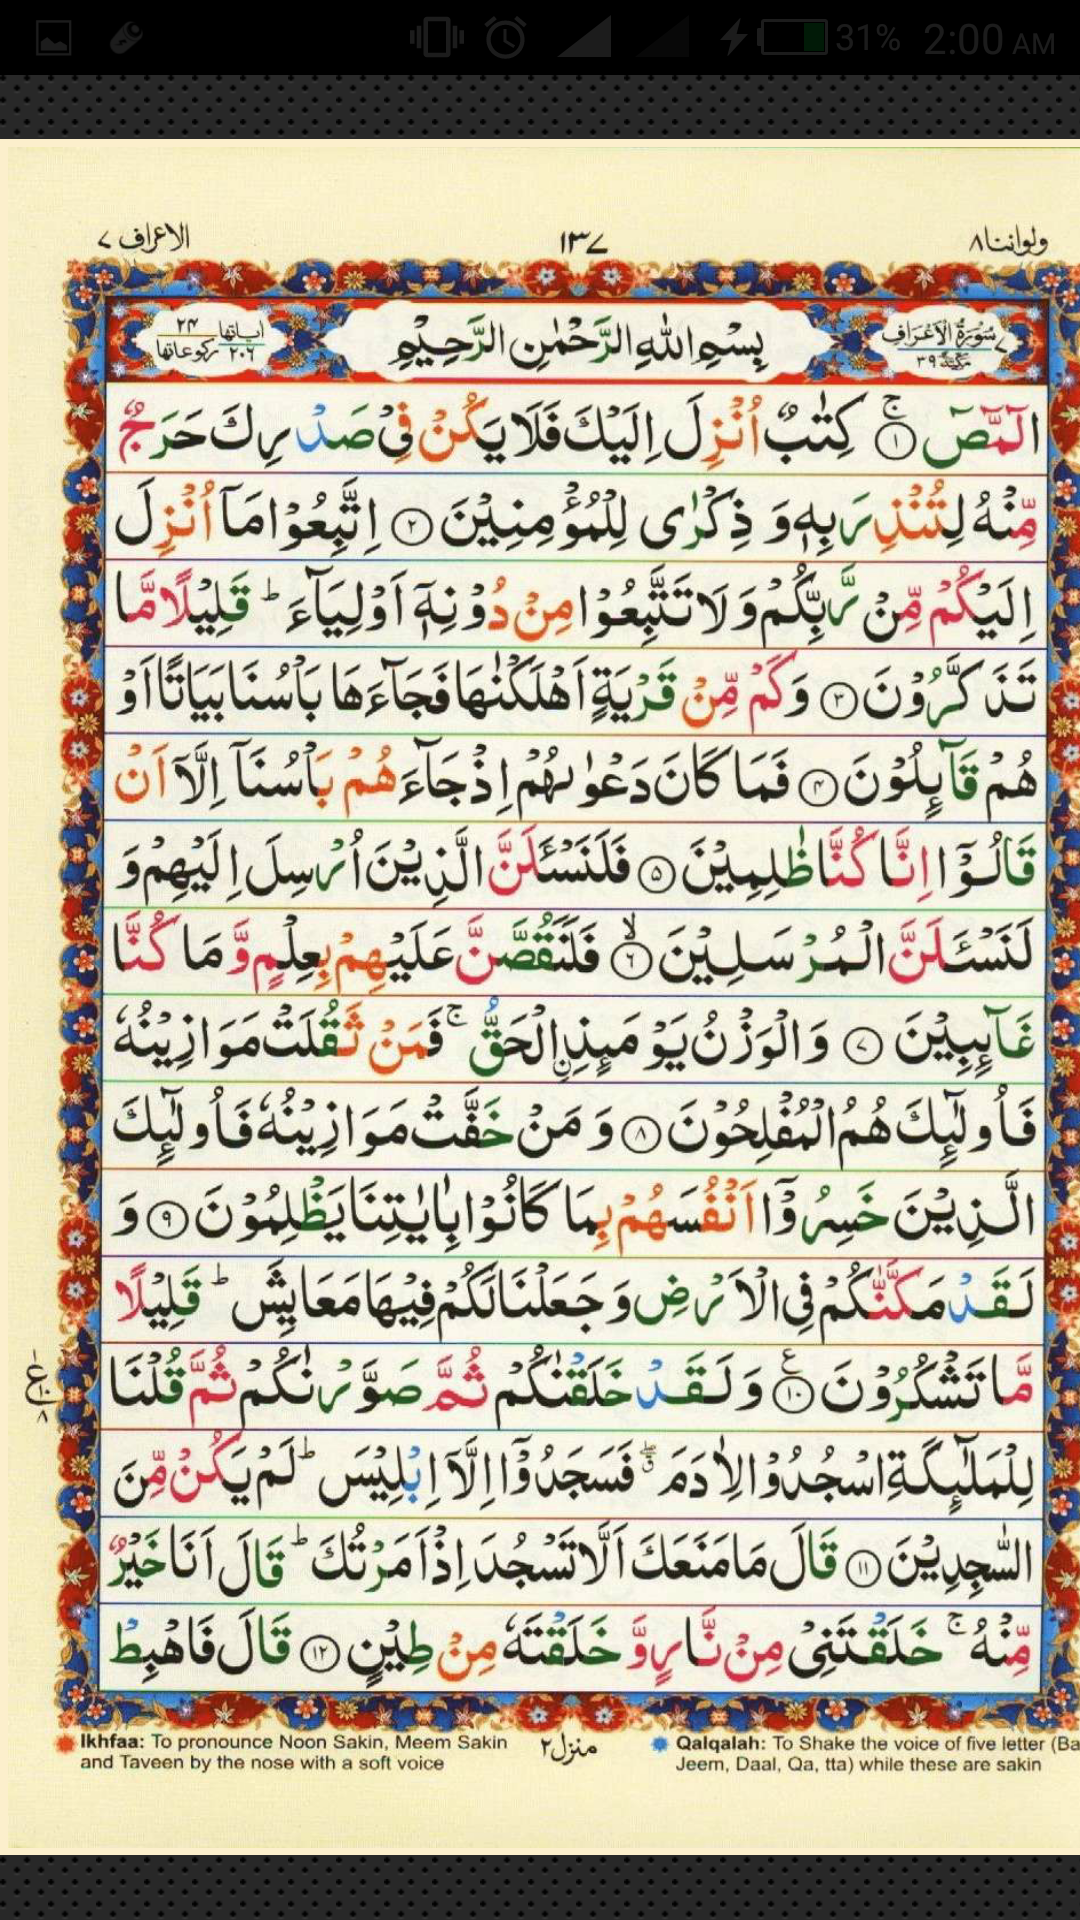 31% 2:00 AM
ولواننا ٨
١٣٧
الاعراف ٧
سُوْرَةُ الْاَعْرَافِ ٧
مكية ٣٩
بِسْمِ اللّٰهِ الرَّحْمٰنِ الرَّحِيْمِ
اٰياتها ٢٠٦
ركوعاتها ٢٤
الٓمّٓصٓ ۚ ١ كِتٰبٌ اُنْزِلَ اِلَيْكَ فَلَا يَكُنْ فِيْ صَدْرِكَ حَرَجٌ
مِّنْهُ لِتُنْذِرَ بِهٖ وَ ذِكْرٰى لِلْمُؤْمِنِيْنَ ٢ اِتَّبِعُوْا مَاۤ اُنْزِلَ
اِلَيْكُمْ مِّنْ رَّبِّكُمْ وَ لَا تَتَّبِعُوْا مِنْ دُوْنِهٖۤ اَوْلِيَآءَ ؕ قَلِيْلًا مَّا
تَذَكَّرُوْنَ ٣ وَ كَمْ مِّنْ قَرْيَةٍ اَهْلَكْنٰهَا فَجَآءَهَا بَاْسُنَا بَيَاتًا اَوْ
هُمْ قَآئِلُوْنَ ٤ فَمَا كَانَ دَعْوٰىهُمْ اِذْ جَآءَهُمْ بَاْسُنَاۤ اِلَّاۤ اَنْ
قَالُوْۤا اِنَّا كُنَّا ظٰلِمِيْنَ ٥ فَلَنَسْـَٔلَنَّ الَّذِيْنَ اُرْسِلَ اِلَيْهِمْ وَ
لَنَسْـَٔلَنَّ الْمُرْسَلِيْنَ ۙ ٦ فَلَنَقُصَّنَّ عَلَيْهِمْ بِعِلْمٍ وَّ مَا كُنَّا
غَآئِبِيْنَ ٧ وَ الْوَزْنُ يَوْمَئِذِ ِۨ الْحَقُّ ۚ فَمَنْ ثَقُلَتْ مَوَازِيْنُهٗ
فَاُولٰٓئِكَ هُمُ الْمُفْلِحُوْنَ ٨ وَ مَنْ خَفَّتْ مَوَازِيْنُهٗ فَاُولٰٓئِكَ
الَّذِيْنَ خَسِرُوْۤا اَنْفُسَهُمْ بِمَا كَانُوْا بِاٰيٰتِنَا يَظْلِمُوْنَ ٩ وَ
لَقَدْ مَكَّنّٰكُمْ فِي الْاَرْضِ وَ جَعَلْنَا لَكُمْ فِيْهَا مَعَايِشَ ؕ قَلِيْلًا
مَّا تَشْكُرُوْنَ ١٠ ع وَ لَقَدْ خَلَقْنٰكُمْ ثُمَّ صَوَّرْنٰكُمْ ثُمَّ قُلْنَا
ع ١٠ ٨
لِلْمَلٰٓئِكَةِ اسْجُدُوْا لِاٰدَمَ ۖق فَسَجَدُوْۤا اِلَّاۤ اِبْلِيْسَ ؕ لَمْ يَكُنْ مِّنَ
السّٰجِدِيْنَ ١١ قَالَ مَا مَنَعَكَ اَلَّا تَسْجُدَ اِذْ اَمَرْتُكَ ؕ قَالَ اَنَا خَيْرٌ
مِّنْهُ ۚ خَلَقْتَنِيْ مِنْ نَّارٍ وَّ خَلَقْتَهٗ مِنْ طِيْنٍ ١٢ قَالَ فَاهْبِطْ
Ikhfaa: To pronounce Noon Sakin, Meem Sakin
and Taveen by the nose with a soft voice
منزل ٢
Qalqalah: To Shake the voice of five letter (Ba
Jeem, Daal, Qa, tta) while these are sakin